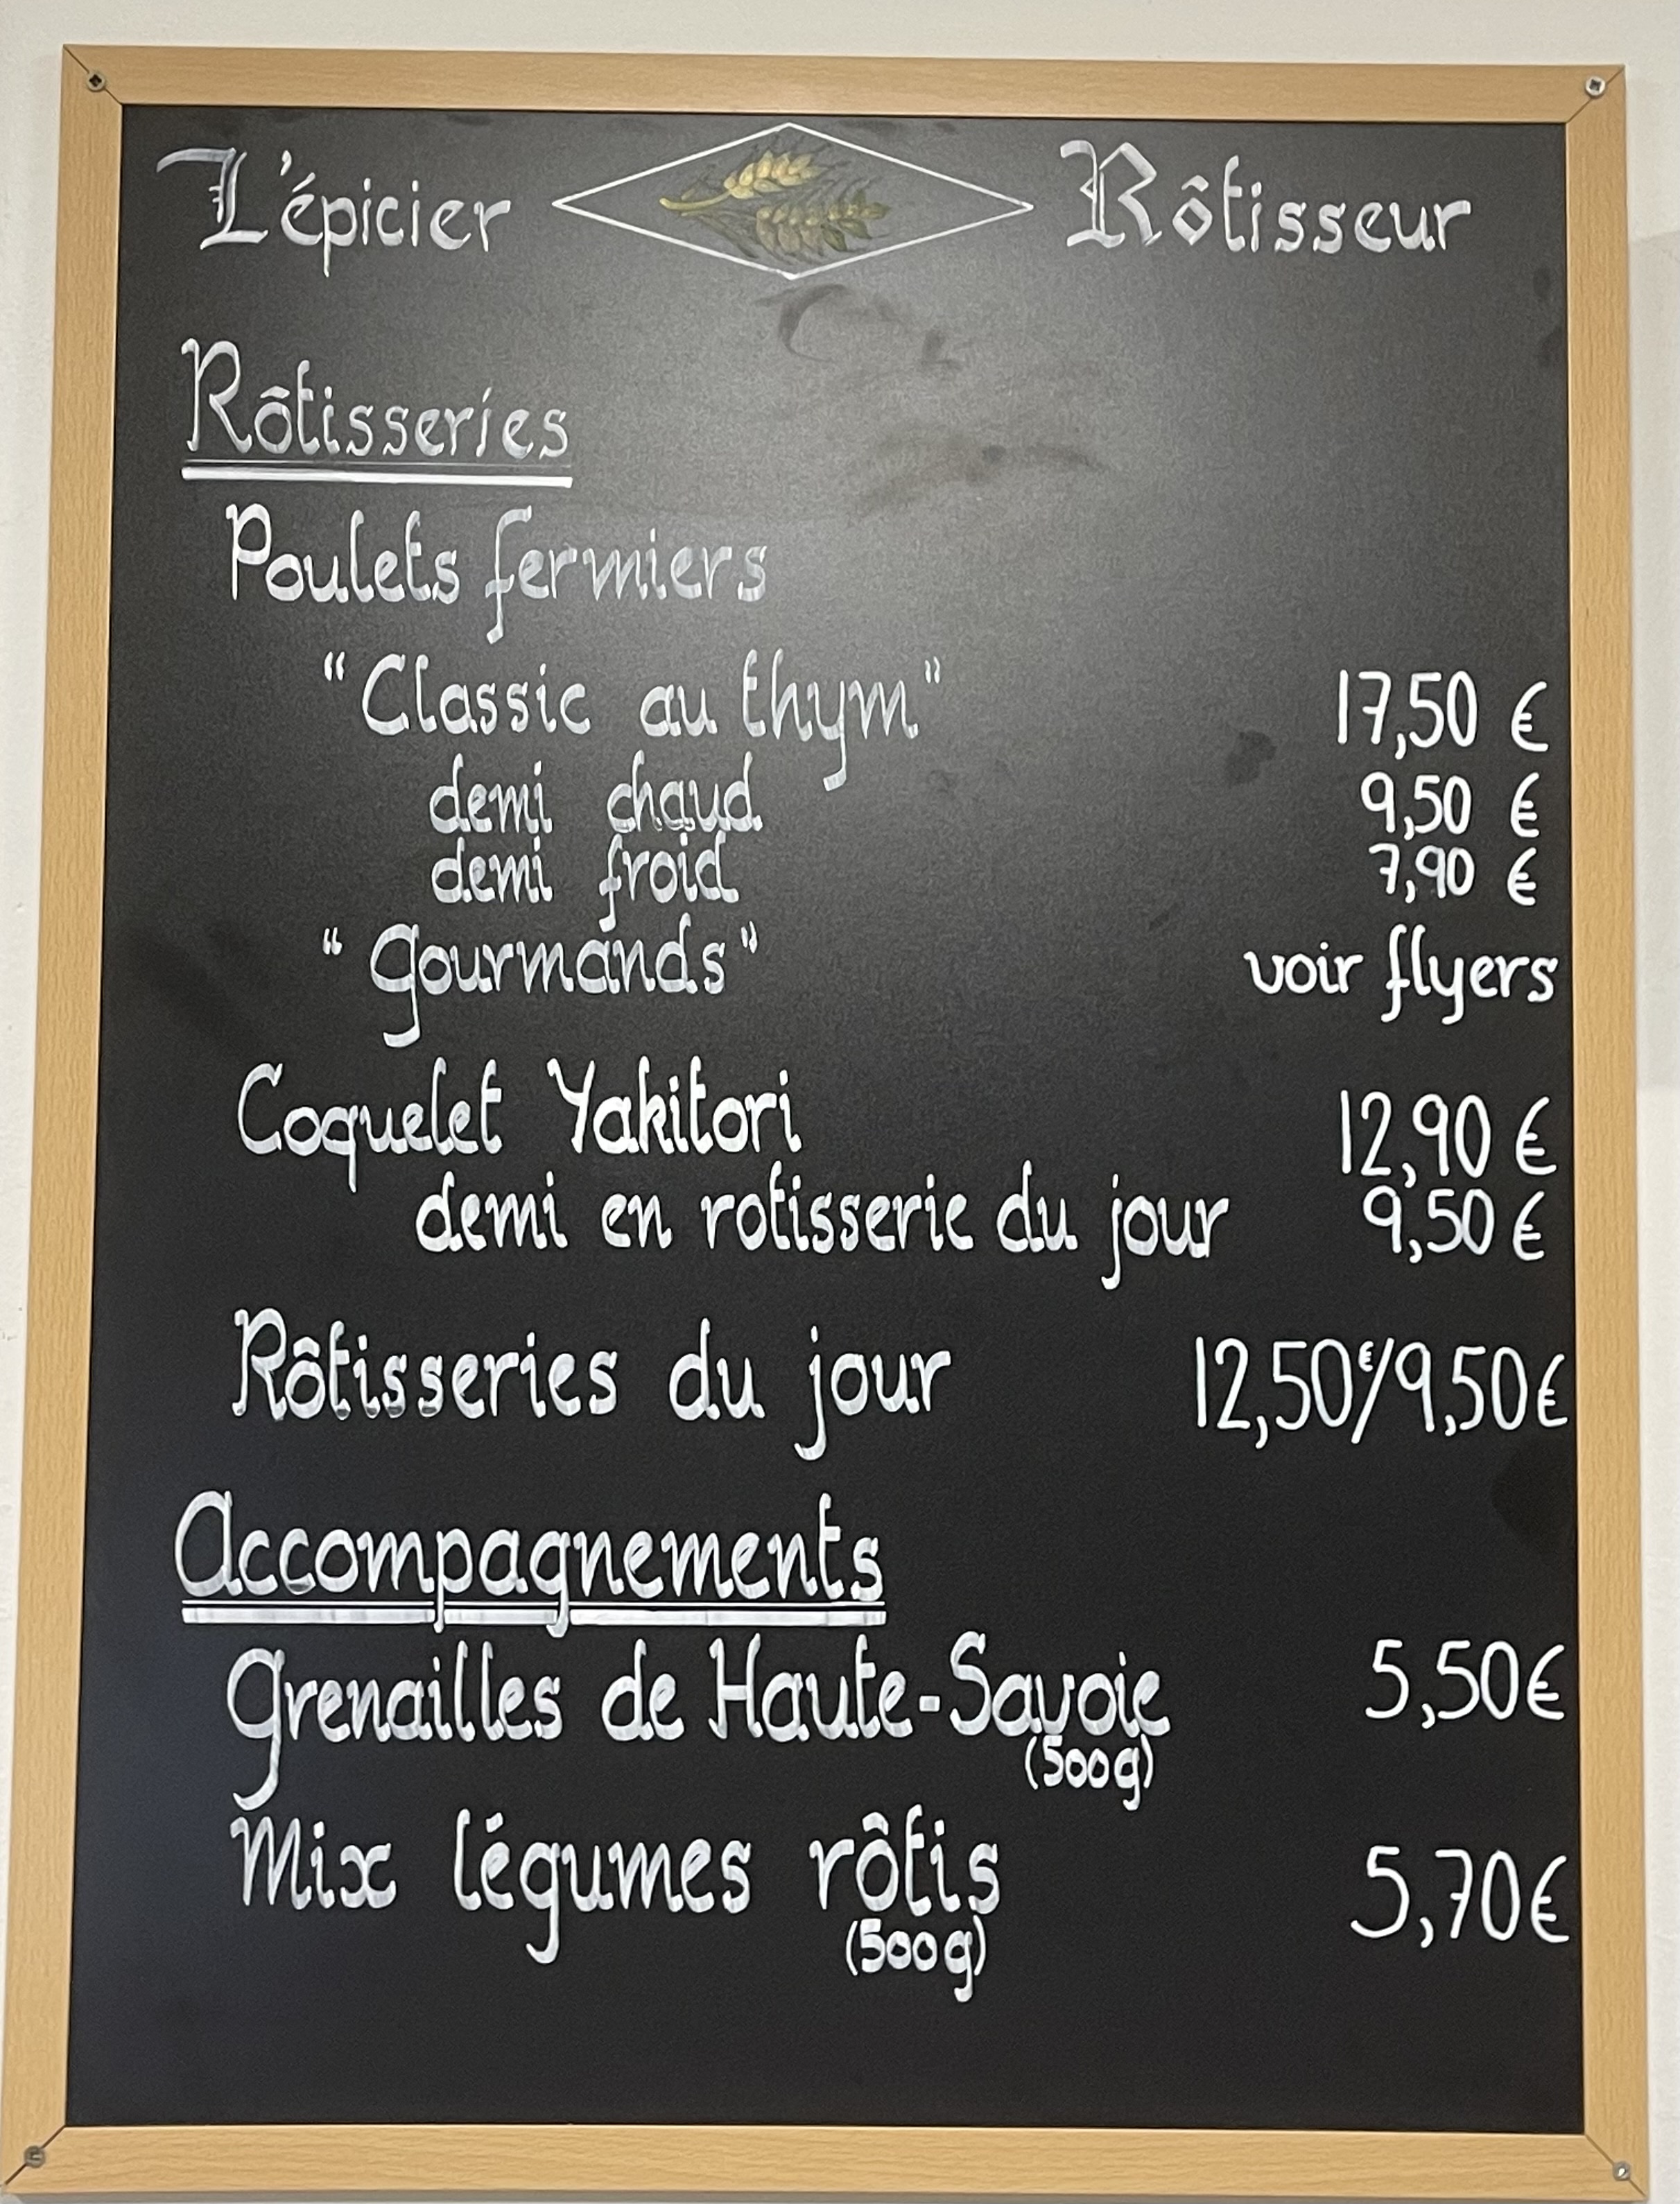 L'épicier Rôtisseur
Rôtisseries
Poulets fermiers
"Classic au thym" 17,50 €
demi chaud 9,50 €
demi froid 7,90 €
"Gourmands" voir flyers
Coquelet Yakitori 12,90 €
demi en rotisserie du jour 9,50 €
Rôtisseries du jour 12,50€/9,50€
Accompagnements
Grenailles de Haute-Savoie 5,50€
(500g)
Mix légumes rôtis 5,70€
(500g)